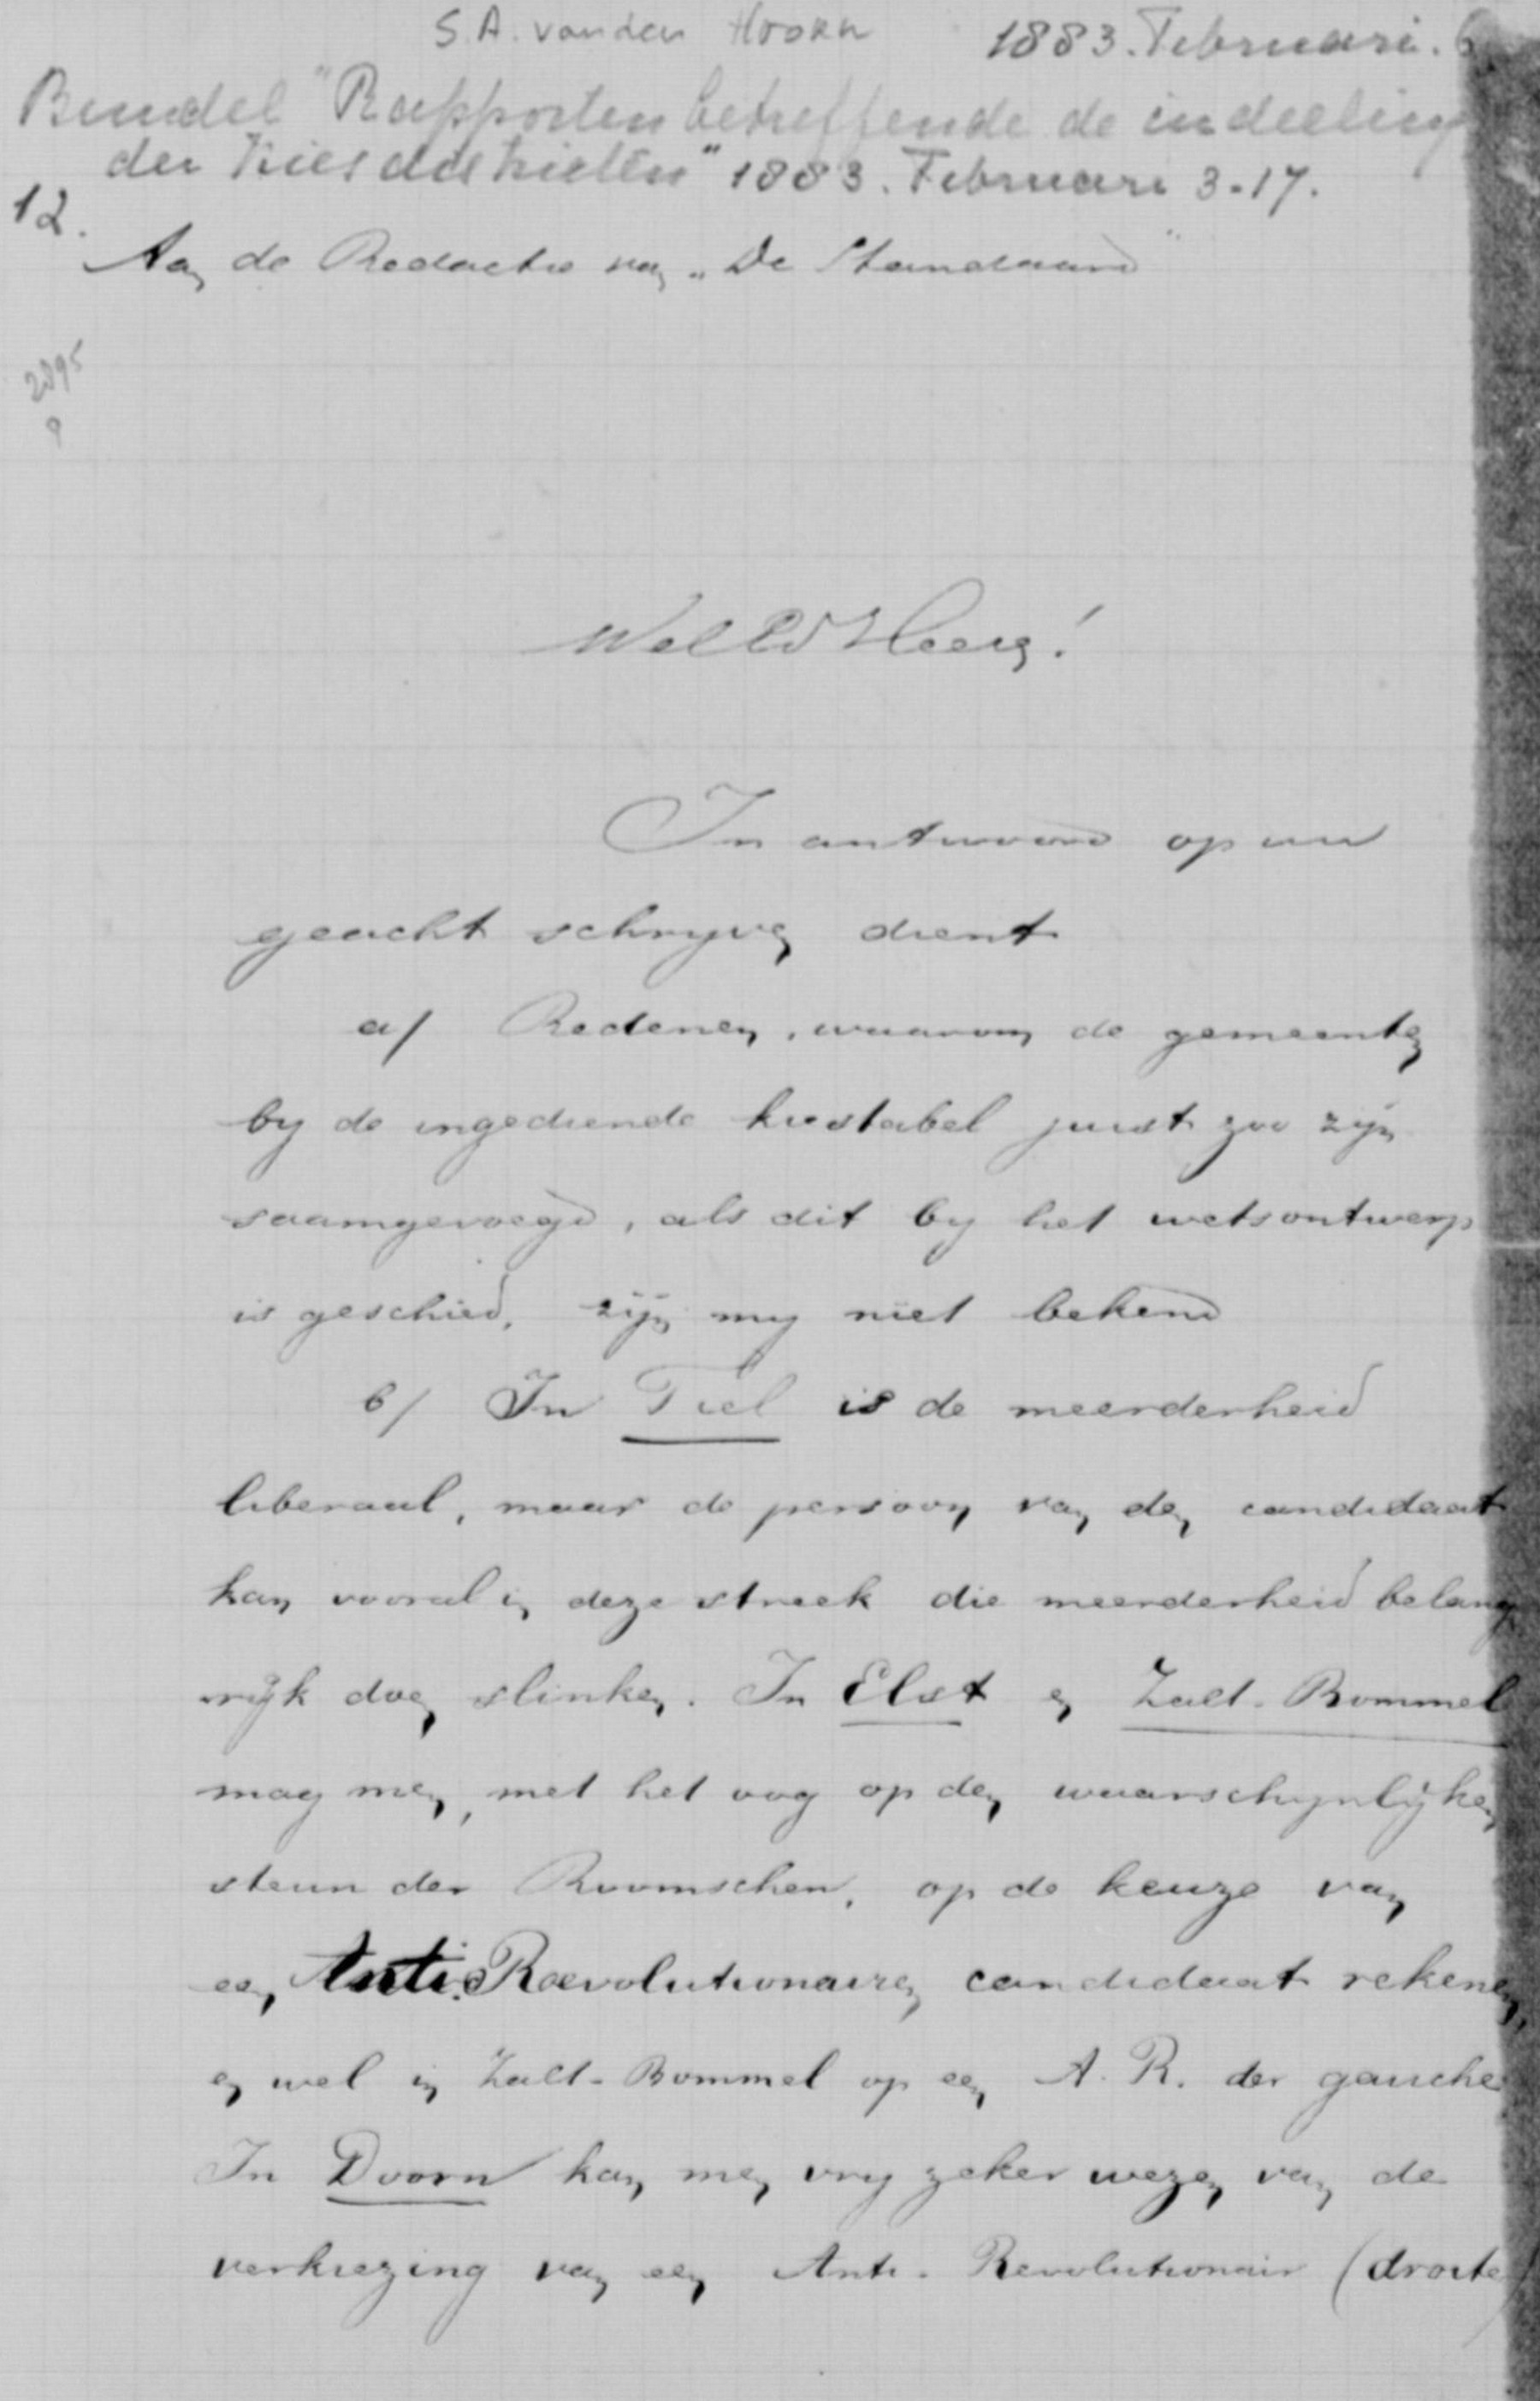 S.A. van den Hoorn 1883. Februari. 6
Bundel "Rapporten betreffende de indeeling
der Kiesdistricten" 1883. Februari 3-17.
12.
Aan de Redactie van „De Standaard"
2895
9
WelEd Heeren!
In antwoord op uw
geacht schryven dient
a/ Redenen, waarom de gemeenten
by de ingediende kiestabel juist zoo zijn
saamgevoegd, als dit by het wetsontwerp
is geschied, zijn my niet bekend
b/ In Tiel is de meerderheid
liberaal, maar de persoon van den candidaat
kan vooral in deze streek die meerderheid belang
rijk doen slinken. In Elst en Zalt-Bommel
mag men, met het oog op den waarschynlijken
steun der Roomschen, op de keuze van
een Anti-Revolutionairen candidaat rekenen,
en wel in Zalt-Bommel op een A. R. der gauche
In Doorn kan men vry zeker wezen van de
verkiezing van een Anti-Revolutionair (droite)